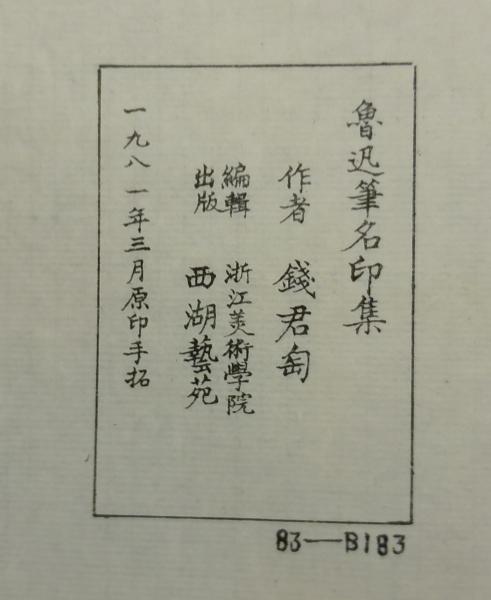 魯迅筆名印集
作者 錢君匋
編輯 浙江美術學院
出版 西湖藝苑
一九八一年三月原印手拓
83—B183